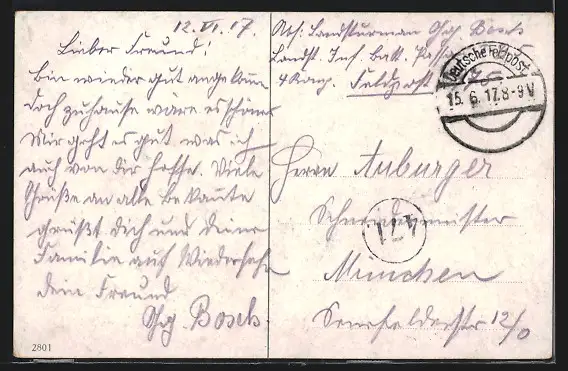 12. VI. 17.
Lieber Freund!
Bin wieder gut angekomm
doch zuhause wäre es schöner
Mir geht es gut was ich
auch von Dir hoffe. Viele
Grüße an alle bekannte
grüßt Dich und deine
Familie auf Wiedersehn
dein Freund
Gg Bosch.
Abs: Landsturman Gg. Bosch
Landst. Inf. Batt.
4 Komp. Feldpost
Deutsche Feldpost
15. 6. 17. 8-9 V
Herrn Auburger
Schneidermeister
471
München
Senefelderstr 12/0
2801